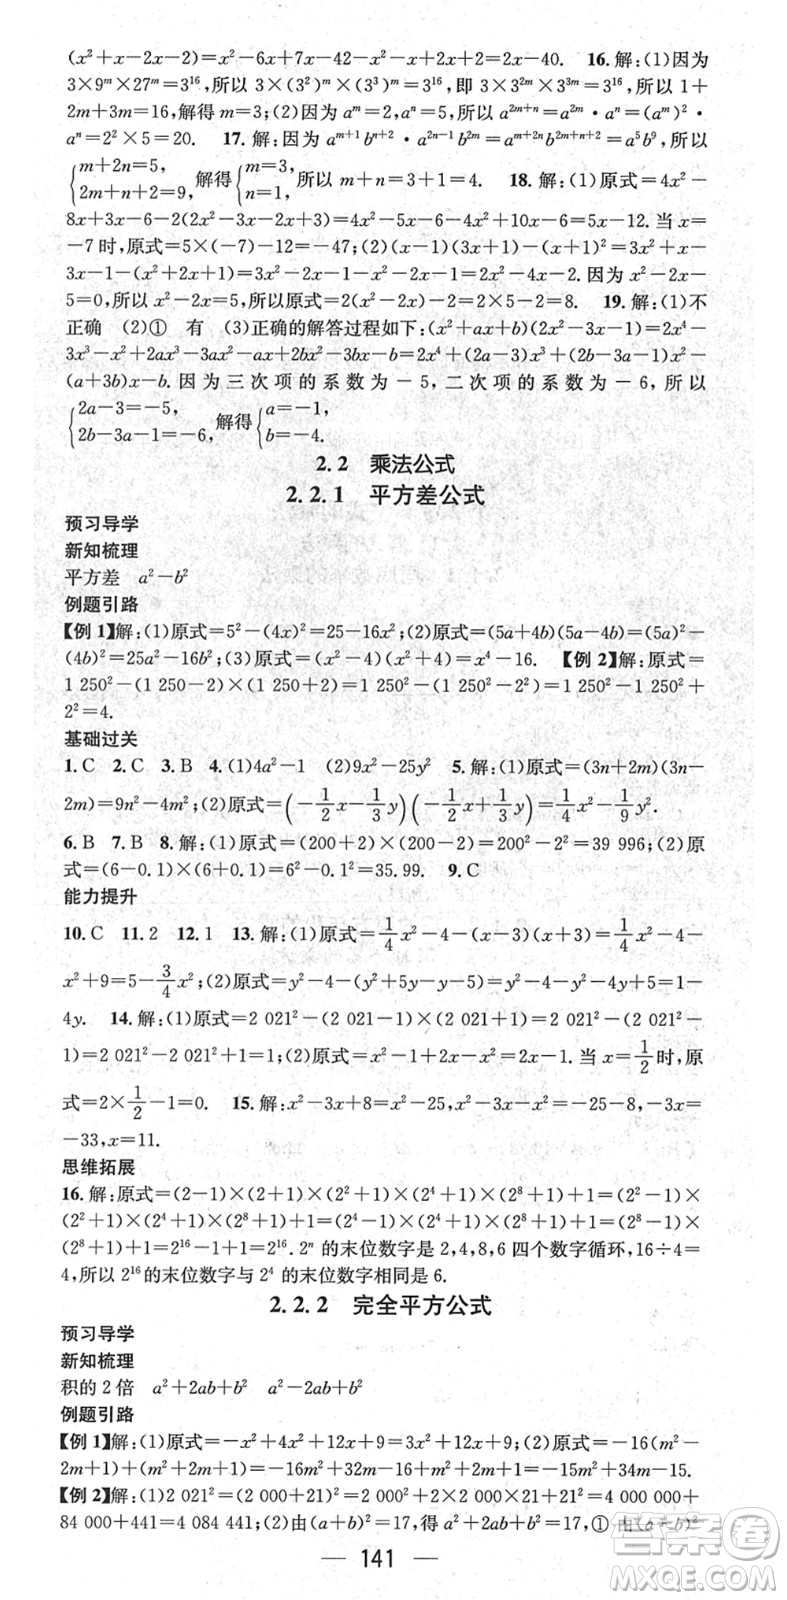 (x²+x-2x-2)=x²-6x+7x-42-x²-x+2x+2=2x-40. 16.解:(1)因为
3×9ᵐ×27ᵐ=3¹⁶,所以 3×(3²)ᵐ×(3³)ᵐ=3¹⁶,即 3×3²ᵐ×3³ᵐ=3¹⁶,所以 1+
2m+3m=16,解得 m=3;(2)因为 aᵐ=2,aⁿ=5,所以 a²ᵐ⁺ⁿ=a²ᵐ·aⁿ=(aᵐ)²·
aⁿ=2²×5=20. 17.解:因为 aᵐ⁺¹bⁿ⁺²·a²ⁿ⁻¹b²ᵐ=aᵐ⁺²ⁿb²ᵐ⁺ⁿ⁺²=a⁵b⁹,所以
{m+2n=5, 2m+n+2=9, 解得{m=3, n=1, 所以 m+n=3+1=4. 18.解:(1)原式=4x²-
8x+3x-6-2(2x²-6x-x+3)=4x²-5x-6-4x²+10x-6=5x-12.当 x=
-7 时,原式=5×(-7)-12=-47;(2)(x-1)(3x+1)-(x+1)²=3x²+x-
3x-1-(x²+2x+1)=3x²-2x-1-x²-2x-1=2x²-4x-2.因为 x²-2x-
5=0,所以 x²-2x=5,所以原式=2(x²-2x)-2=2×5-2=8. 19.解:(1)不
正确 (2)① 有 (3)正确的解答过程如下:(x²+ax+b)(2x²-3x-1)=2x⁴-
3x³-x²+2ax³-3ax²-ax+2bx²-3bx-b=2x⁴+(2a-3)x³+(2b-3a-1)x²-
(a+3b)x-b.因为三次项的系数为-5,二次项的系数为-6,所以
{2a-3=-5, 2b-3a-1=-6, 解得{a=-1, b=-4.
2.2 乘法公式
2.2.1 平方差公式
预习导学
新知梳理
平方差 a²-b²
例题引路
【例 1】解:(1)原式=5²-(4x)²=25-16x²;(2)原式=(5a+4b)(5a-4b)=(5a)²-
(4b)²=25a²-16b²;(3)原式=(x²-4)(x²+4)=x⁴-16. 【例 2】解:原式=
1 250²-(1 250-2)×(1 250+2)=1 250²-(1 250²-2²)=1 250²-1 250²+
2²=4.
基础过关
1.C 2.C 3.B 4.(1)4a²-1 (2)9x²-25y² 5.解:(1)原式=(3n+2m)(3n-
2m)=9n²-4m²;(2)原式=(-1/2x-1/3y)(-1/2x+1/3y)=1/4x²-1/9y².
6.B 7.B 8.解:(1)原式=(200+2)×(200-2)=200²-2²=39 996;(2)原
式=(6-0.1)×(6+0.1)=6²-0.1²=35.99. 9.C
能力提升
10.C 11.2 12.1 13.解:(1)原式=1/4x²-4-(x-3)(x+3)=1/4x²-4-
x²+9=5-3/4x²;(2)原式=y²-4-(y²+5y-y-5)=y²-4-y²-4y+5=1-
4y. 14.解:(1)原式=2 021²-(2 021-1)×(2 021+1)=2 021²-(2 021²-
1)=2 021²-2 021²+1=1;(2)原式=x²-1+2x-x²=2x-1.当 x=1/2时,原
式=2×1/2-1=0. 15.解:x²-3x+8=x²-25,x²-3x-x²=-25-8,-3x=
-33,x=11.
思维拓展
16.解:原式=(2-1)×(2+1)×(2²+1)×(2⁴+1)×(2⁸+1)+1=(2²-1)×
(2²+1)×(2⁴+1)×(2⁸+1)+1=(2⁴-1)×(2⁴+1)×(2⁸+1)+1=(2⁸-1)×
(2⁸+1)+1=2¹⁶-1+1=2¹⁶.2ⁿ 的末位数字是 2,4,8,6 四个数字循环,16÷4=
4,所以 2¹⁶的末位数字与 2⁴ 的末位数字相同是 6.
2.2.2 完全平方公式
预习导学
新知梳理
积的 2 倍 a²+2ab+b² a²-2ab+b²
例题引路
【例 1】解:(1)原式=-x²+4x²+12x+9=3x²+12x+9;(2)原式=-16(m²-
2m+1)+(m²+2m+1)=-16m²+32m-16+m²+2m+1=-15m²+34m-15.
【例 2】解:(1)2 021²=(2 000+21)²=2 000²+2×2 000×21+21²=4 000 000+
84 000+441=4 084 441;(2)由(a+b)²=17,得 a²+2ab+b²=17,① 由(a-b)²
141
答案圈